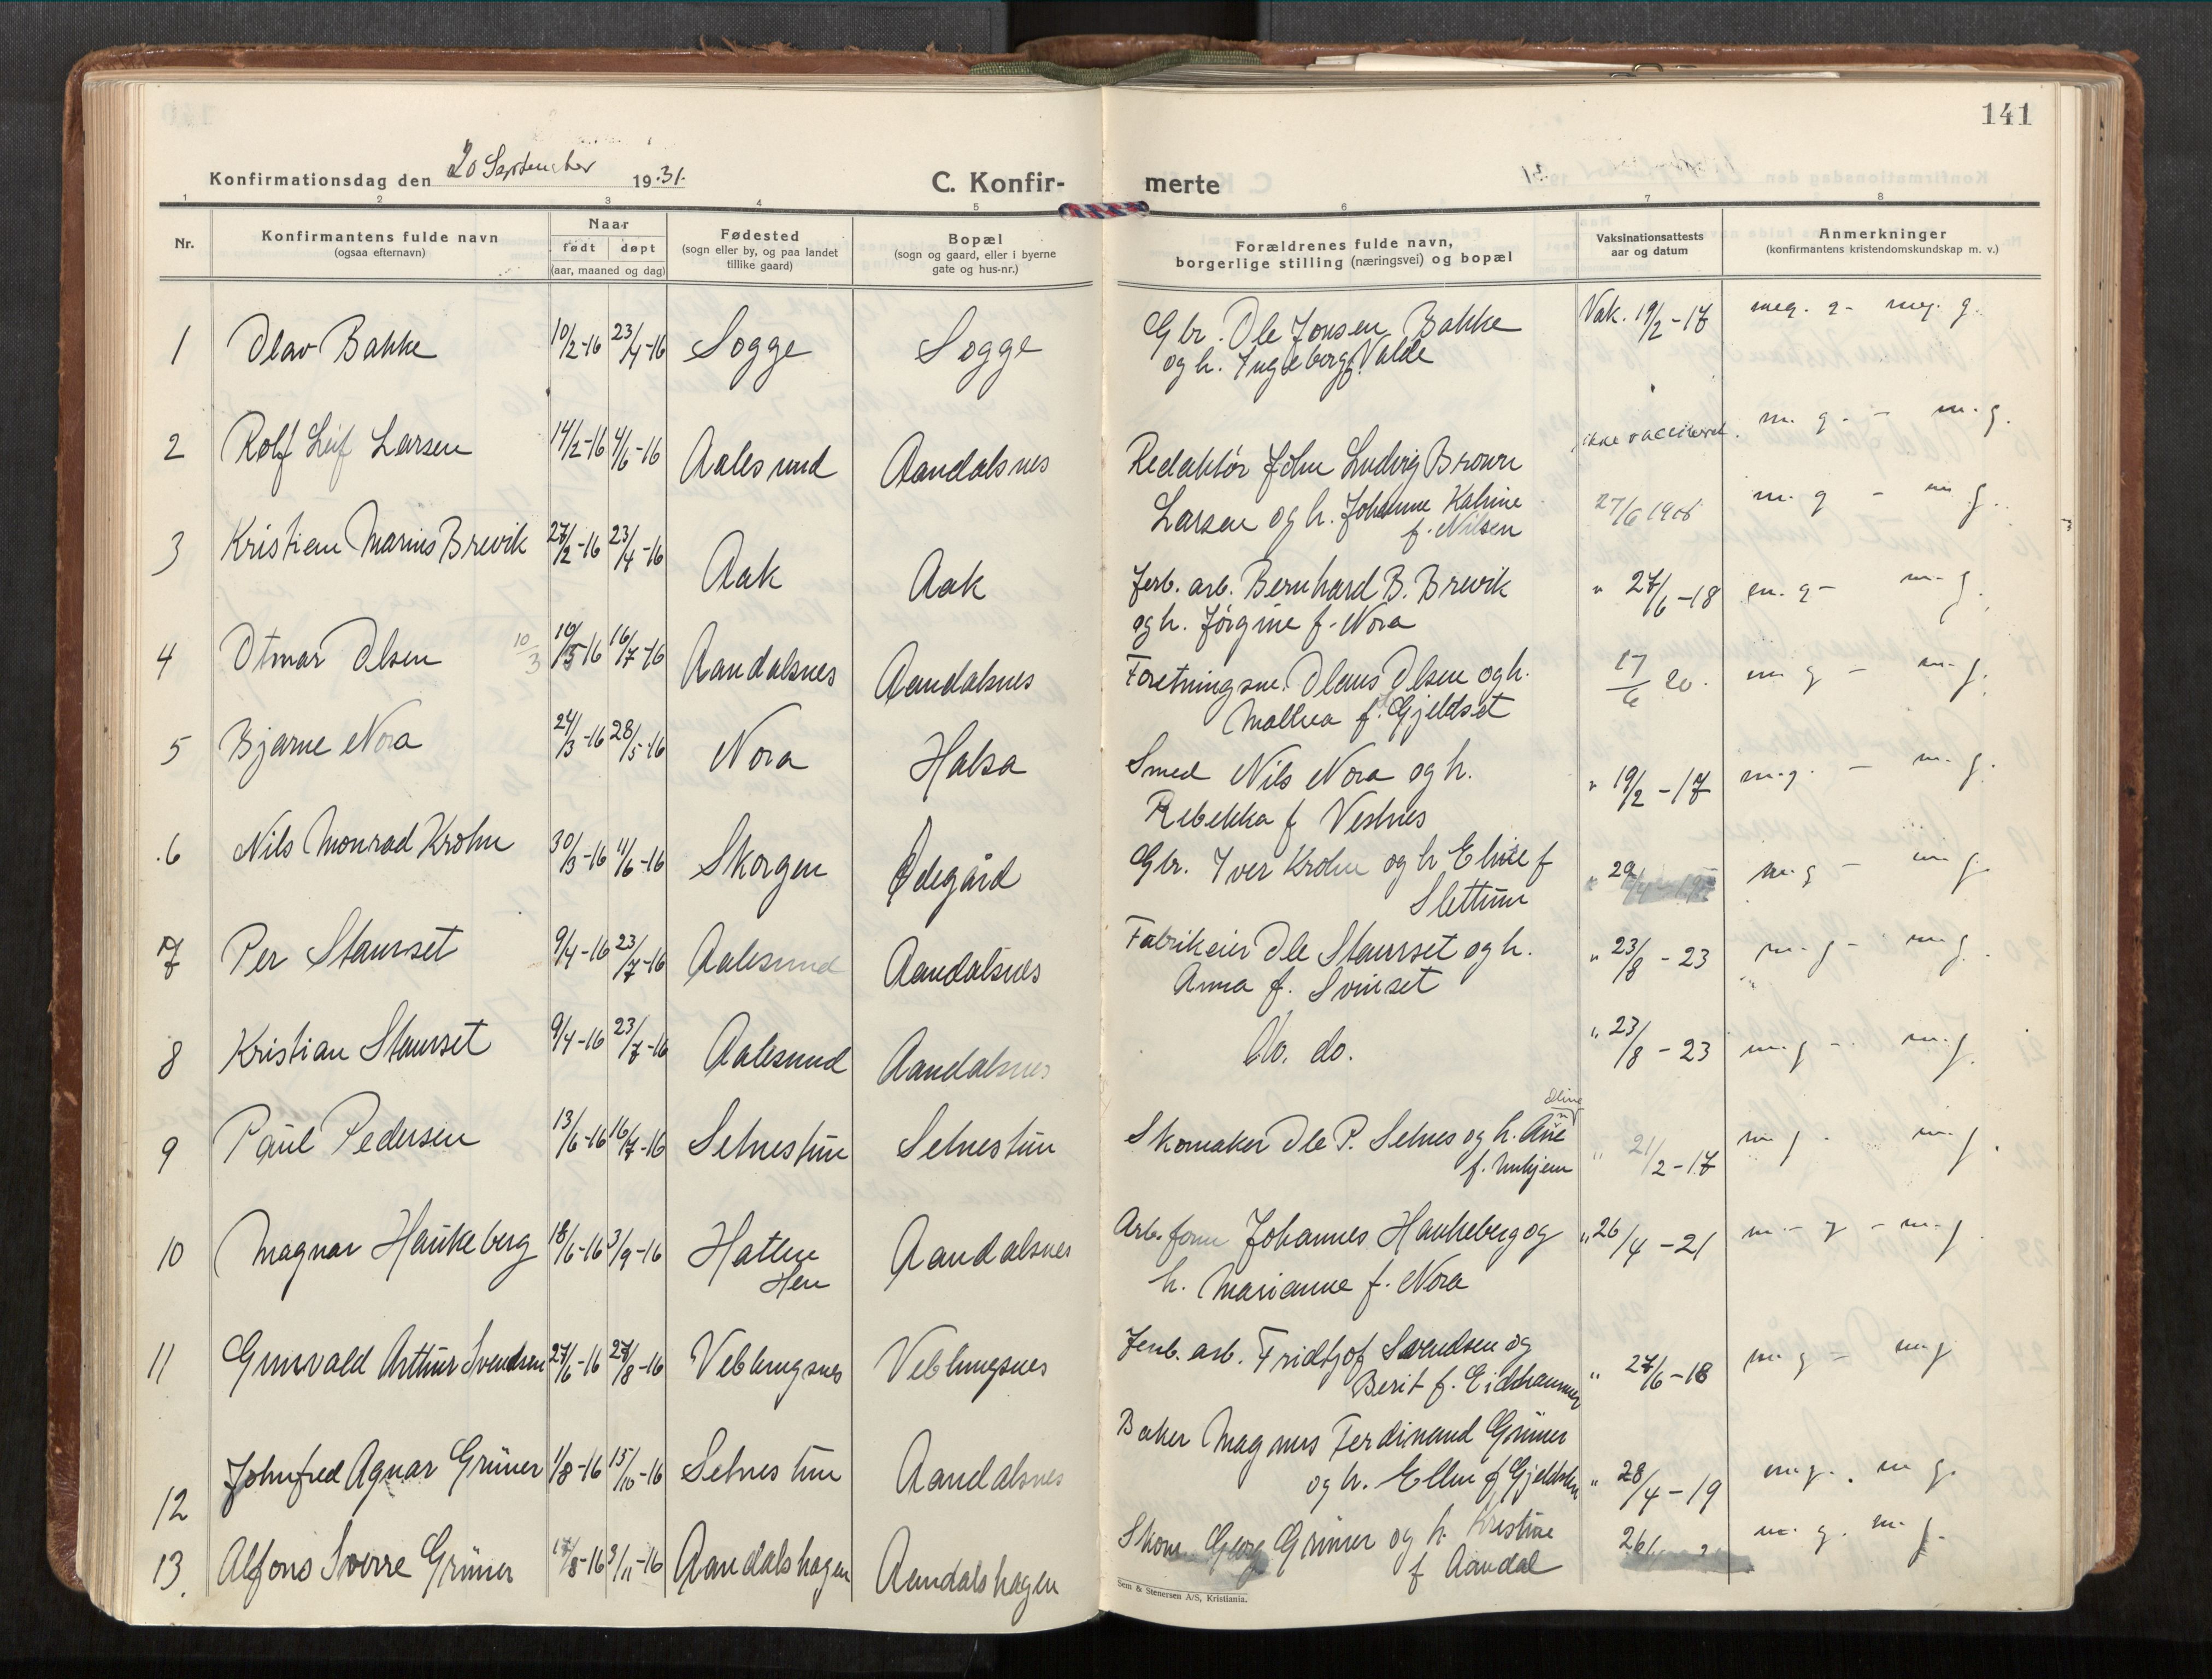 141
Konfirmationsdag den 20 September 1931.
C. Konfir- merte
1 2 3 4 5 6 7 8
Nr.
Konfirmantens fulde navn
(ogsaa efternavn)
Naar
født døpt
(aar, maaned og dag)
Fødested
(sogn eller by, og paa landet
tillike gaard)
Bopæl
(sogn og gaard, eller i byerne
gate og hus-nr.)
Forældrenes fulde navn,
borgerlige stilling (næringsvei) og bopæl
Vaksinationsattests
aar og datum
Anmerkninger
(konfirmantens kristendomskundskap m. v.)
1 Olav Bakke 10/2-16 23/4-16 Sogge Sogge Gbr. Ole Jonsen Bakke Vak. 19/2-17 meg. g- meg. g.
og h. Ingeborg f. Valde
2 Rolf Leif Larsen 14/2-16 4/6-16 Aalesund Aandalsnes Redaktör John Ludvig Brown ikke vaccinered. m. g. - m. g.
Larsen og h. Johanne Katrine 27/6 1908 m. g - m g.
f. Nilsen
3 Kristian Marius Brevik 27/2-16 23/4-16 Aak Aak Jerb. arb. Bernhard B. Brevik " 27/6-18 m. g- m. g.
og h. Jörgine f. Nora
4 Otmar Olsen 10/3 10/5-16 16/7-16 Aandalsnes Aandalsnes Foretningsm. Olaus Olsen og h. 17/6 20. m g - m. g.
Mathea f. Gjeldset
5 Bjarne Nora 24/3-16 28/5-16 Nora Halsa Smed Nils Nora og h. " 19/2-17 m. g. - m. g.
Rebekka f Vestnes
6 Nils Monrad Krohn 30/3-16 11/6-16 Skorgen Ødegård Gbr. Iver Krohn og h Elise f " 29 m. g - m g
Slettum
7 Per Staurset 9/4-16 23/7-16 Aalesund Aandalsnes Fabrikeier Ole Staurset og h. " 23/8-23 m. g - m g.
Anna f. Svinset
8 Kristian Staurset 9/4-16 23/7-16 Aalesund Aandalsnes Do. do. " 23/8-23 m. g - m. g.
9 Paul Pedersen 13/6-16 16/7-16 Setnestun Setnestun Skomaker Ole P. Setnes og h. " 21/2-17 m g. m g.
f. Unhjem
10 Magnar Haukeberg 18/6-16 3/9-16 Hatlen Aandalsnes Arb. form Johannes Haukeberg og " 26/4-21 m. - g - m. g.
Hen h. Marianne f. Nora
11 Grunvald Arthur Svendsen 27/6-16 27/8-16 Veblungsnes Veblungsnes Jernb. arb. Fridtjof Svendsen og " 27/6-18 m g - m g
Berit f. Eidhammer
12 Johnfred Agnar Grüner 1/8-16 15/10-16 Setnestun Aandalsnes Baker Magnus Ferdinand Grüner
og h. Ellen f Gjeldsten " 28/4-19 m g. m g.
13. Alfons Sverre Grüner 17/8-16 3/11-16 Aandalshagen Aandalshagen Skom Georg Grüner og h. Kristine 26 m. g. m g.
f Aandal
Sem & Stenersen A/S, Kristiania.